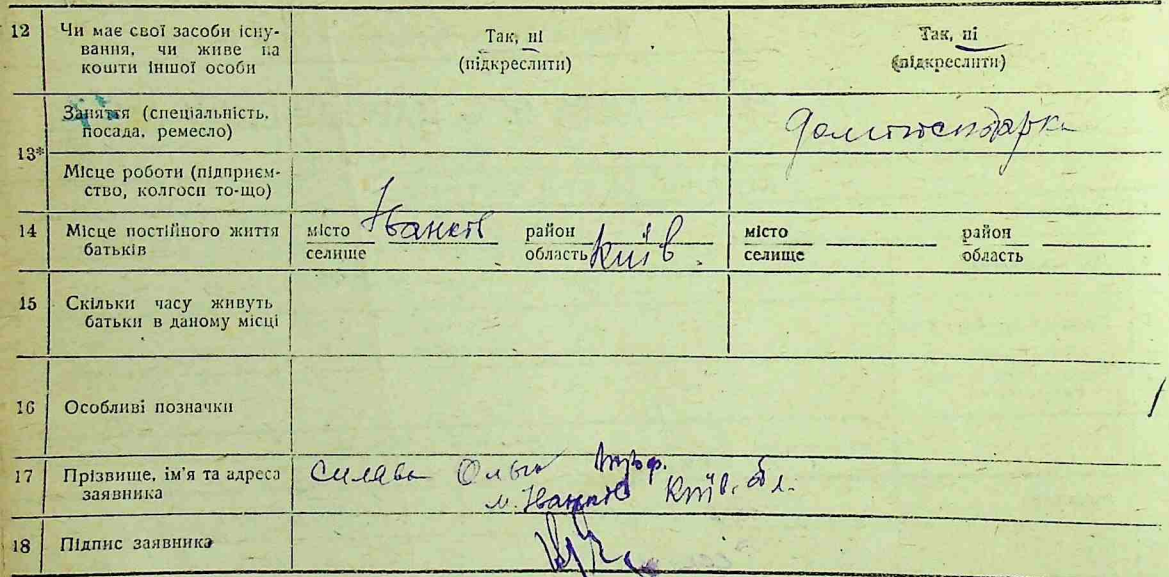 12 Чи має свої засоби існу-
вання, чи живе на
кошти іншої особи
Так, ні
(підкреслити)
Так, ні
(підкреслити)
13*
Заняття (спеціальність,
посада, ремесло)
Домгосподарка
Місце роботи (підприєм-
ство, колгосп то-що)
14 Місце постійного життя
батьків
місто Іванків район
селище область Київ.
місто район
селище область
15 Скільки часу живуть
батьки в даному місці
16 Особливі позначки
17 Прізвище, ім'я та адреса
заявника
Ольга
м. Іванків Київ. обл.
18 Підпис заявника